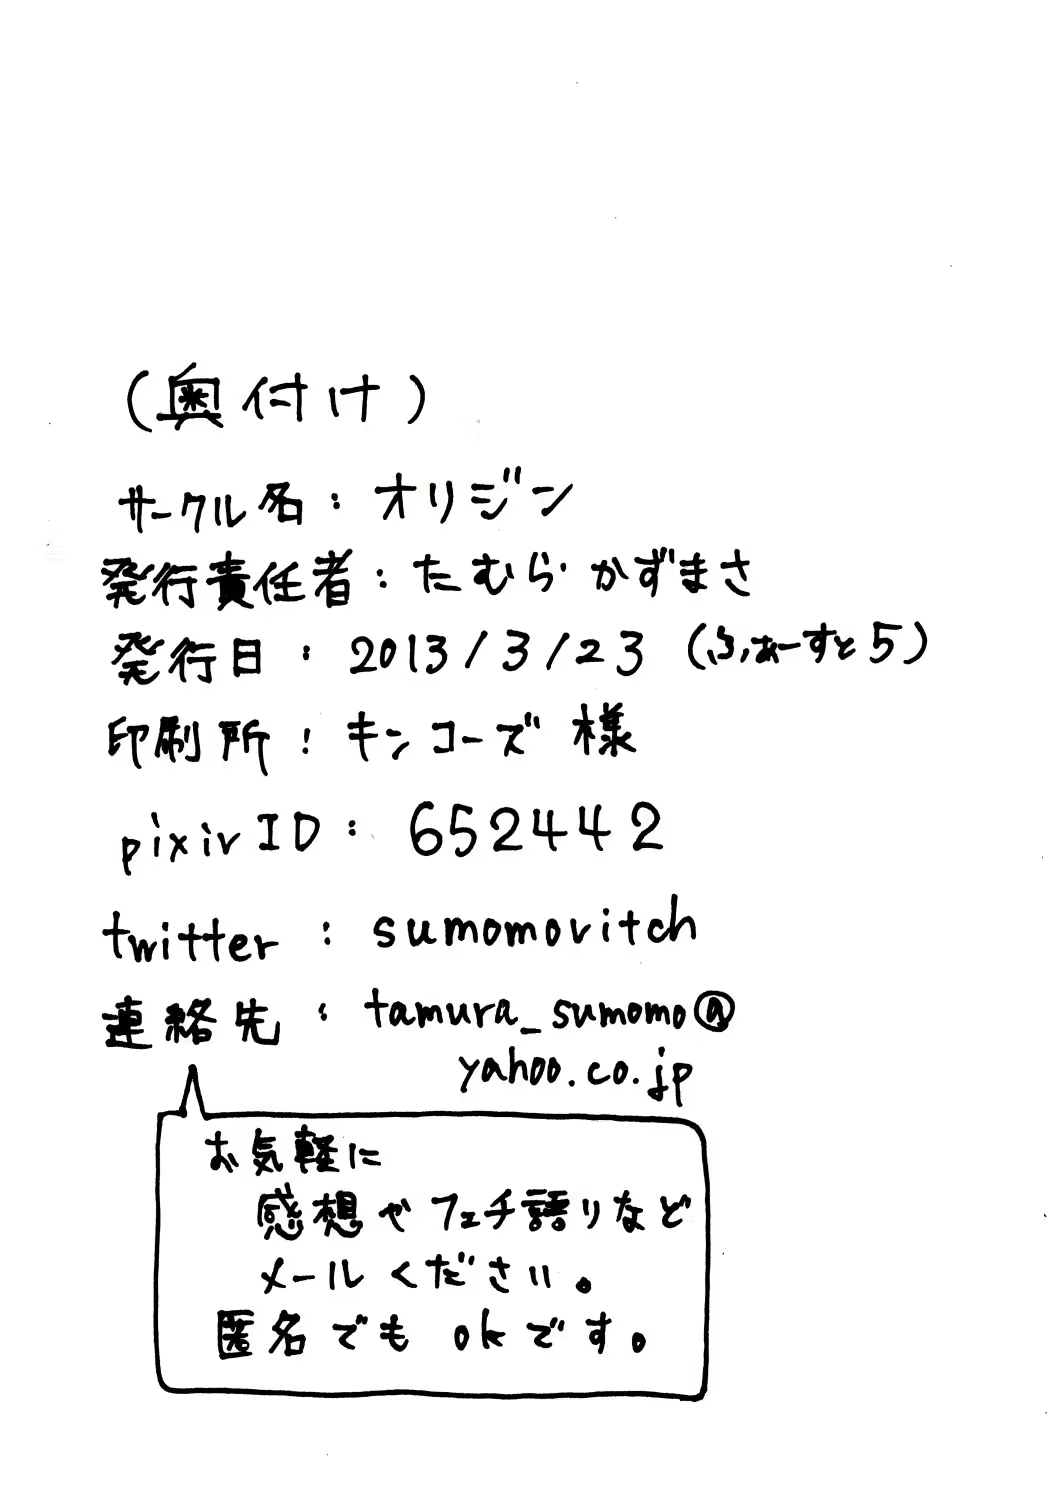 (奥付け)
サークル名：オリジン
発行責任者：たむら かずまさ
発行日：2013/3/23 (ふぁーすと5)
印刷所：キンコーズ 様
pixiv ID：652442
twitter：sumomovitch
連絡先：tamura_sumomo@
yahoo.co.jp
お気軽に
感想やフェチ語りなど
メールください。
匿名でも okです。